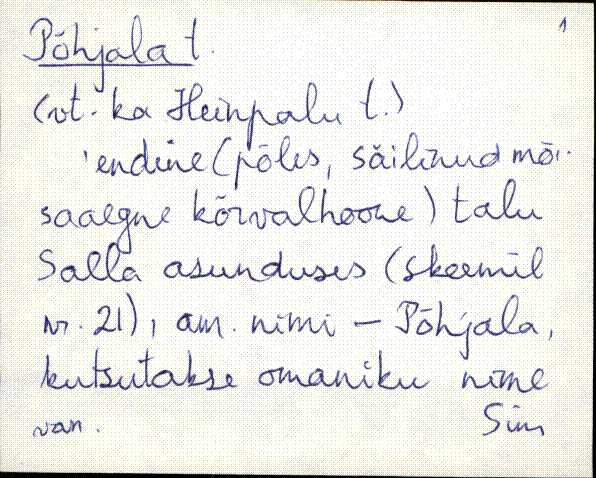 1
Põhjala t.
(vt. ka Heinpalu t.)
'endine (põles, säilinud mõi-
saaegne kõrvalhoone) talu
Salla asunduses (skeemil
nr. 21), am. nimi – Põhjala,
kutsutakse omaniku nime
van. Sim